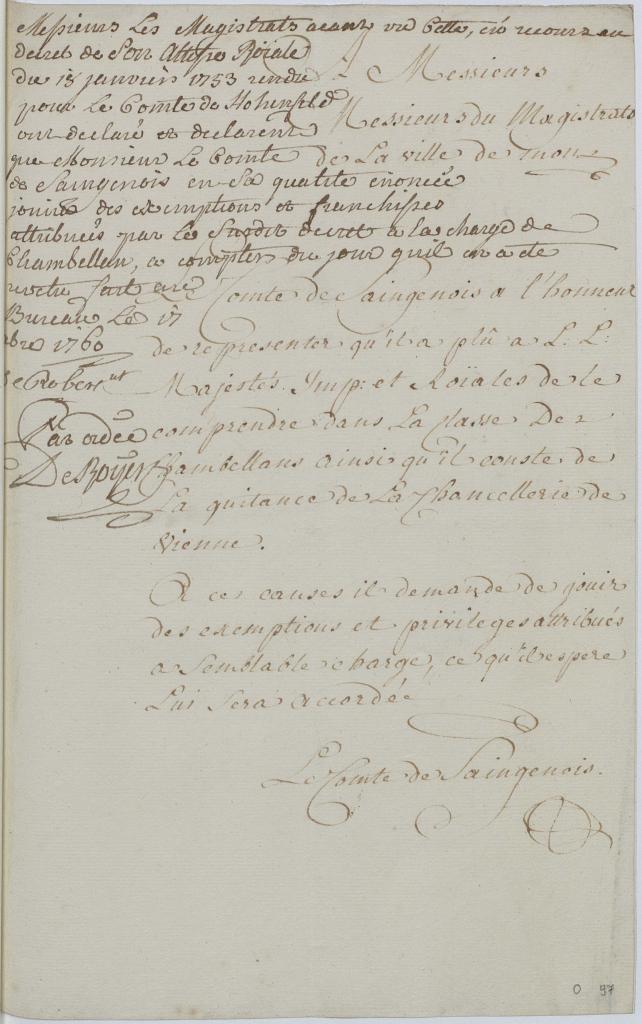 Messieurs Les Magistrats aeant vu Cette, en recours au
decret de Son Altesse Roïale
du 18 janvier 1753 rendu
pour Le Comte de Hohenfeld
ont declaré et declarent
que Monsieur Le Comte
de Saingenois en Sa qualité enoncée
jouira des exemptions et franchises
attribueés par Le Susdit decret a la charge de
Chambellan, a compter du jour qu'il en a été
Bureau Le 17
bre 1760
De Robert
Par ordre
De Royer
a Messieurs
Messieurs du Magistrats
de La ville de mons
Le Comte de Saingenois a l'honneur
de representer qu'il a plû a L. L:
Majestés Imp: et Roïales de le
comprendre dans La Classe Des
Chambellans ainsi qu'il conste de
La quitance de La Chancellerie de
Vienne.
A ces causes il demande de jouir
des exemptions et privileges attribués
a Semblable charge, ce qu'il espere
Lui Sera accordée
Le Comte de Saingenois.
0 97